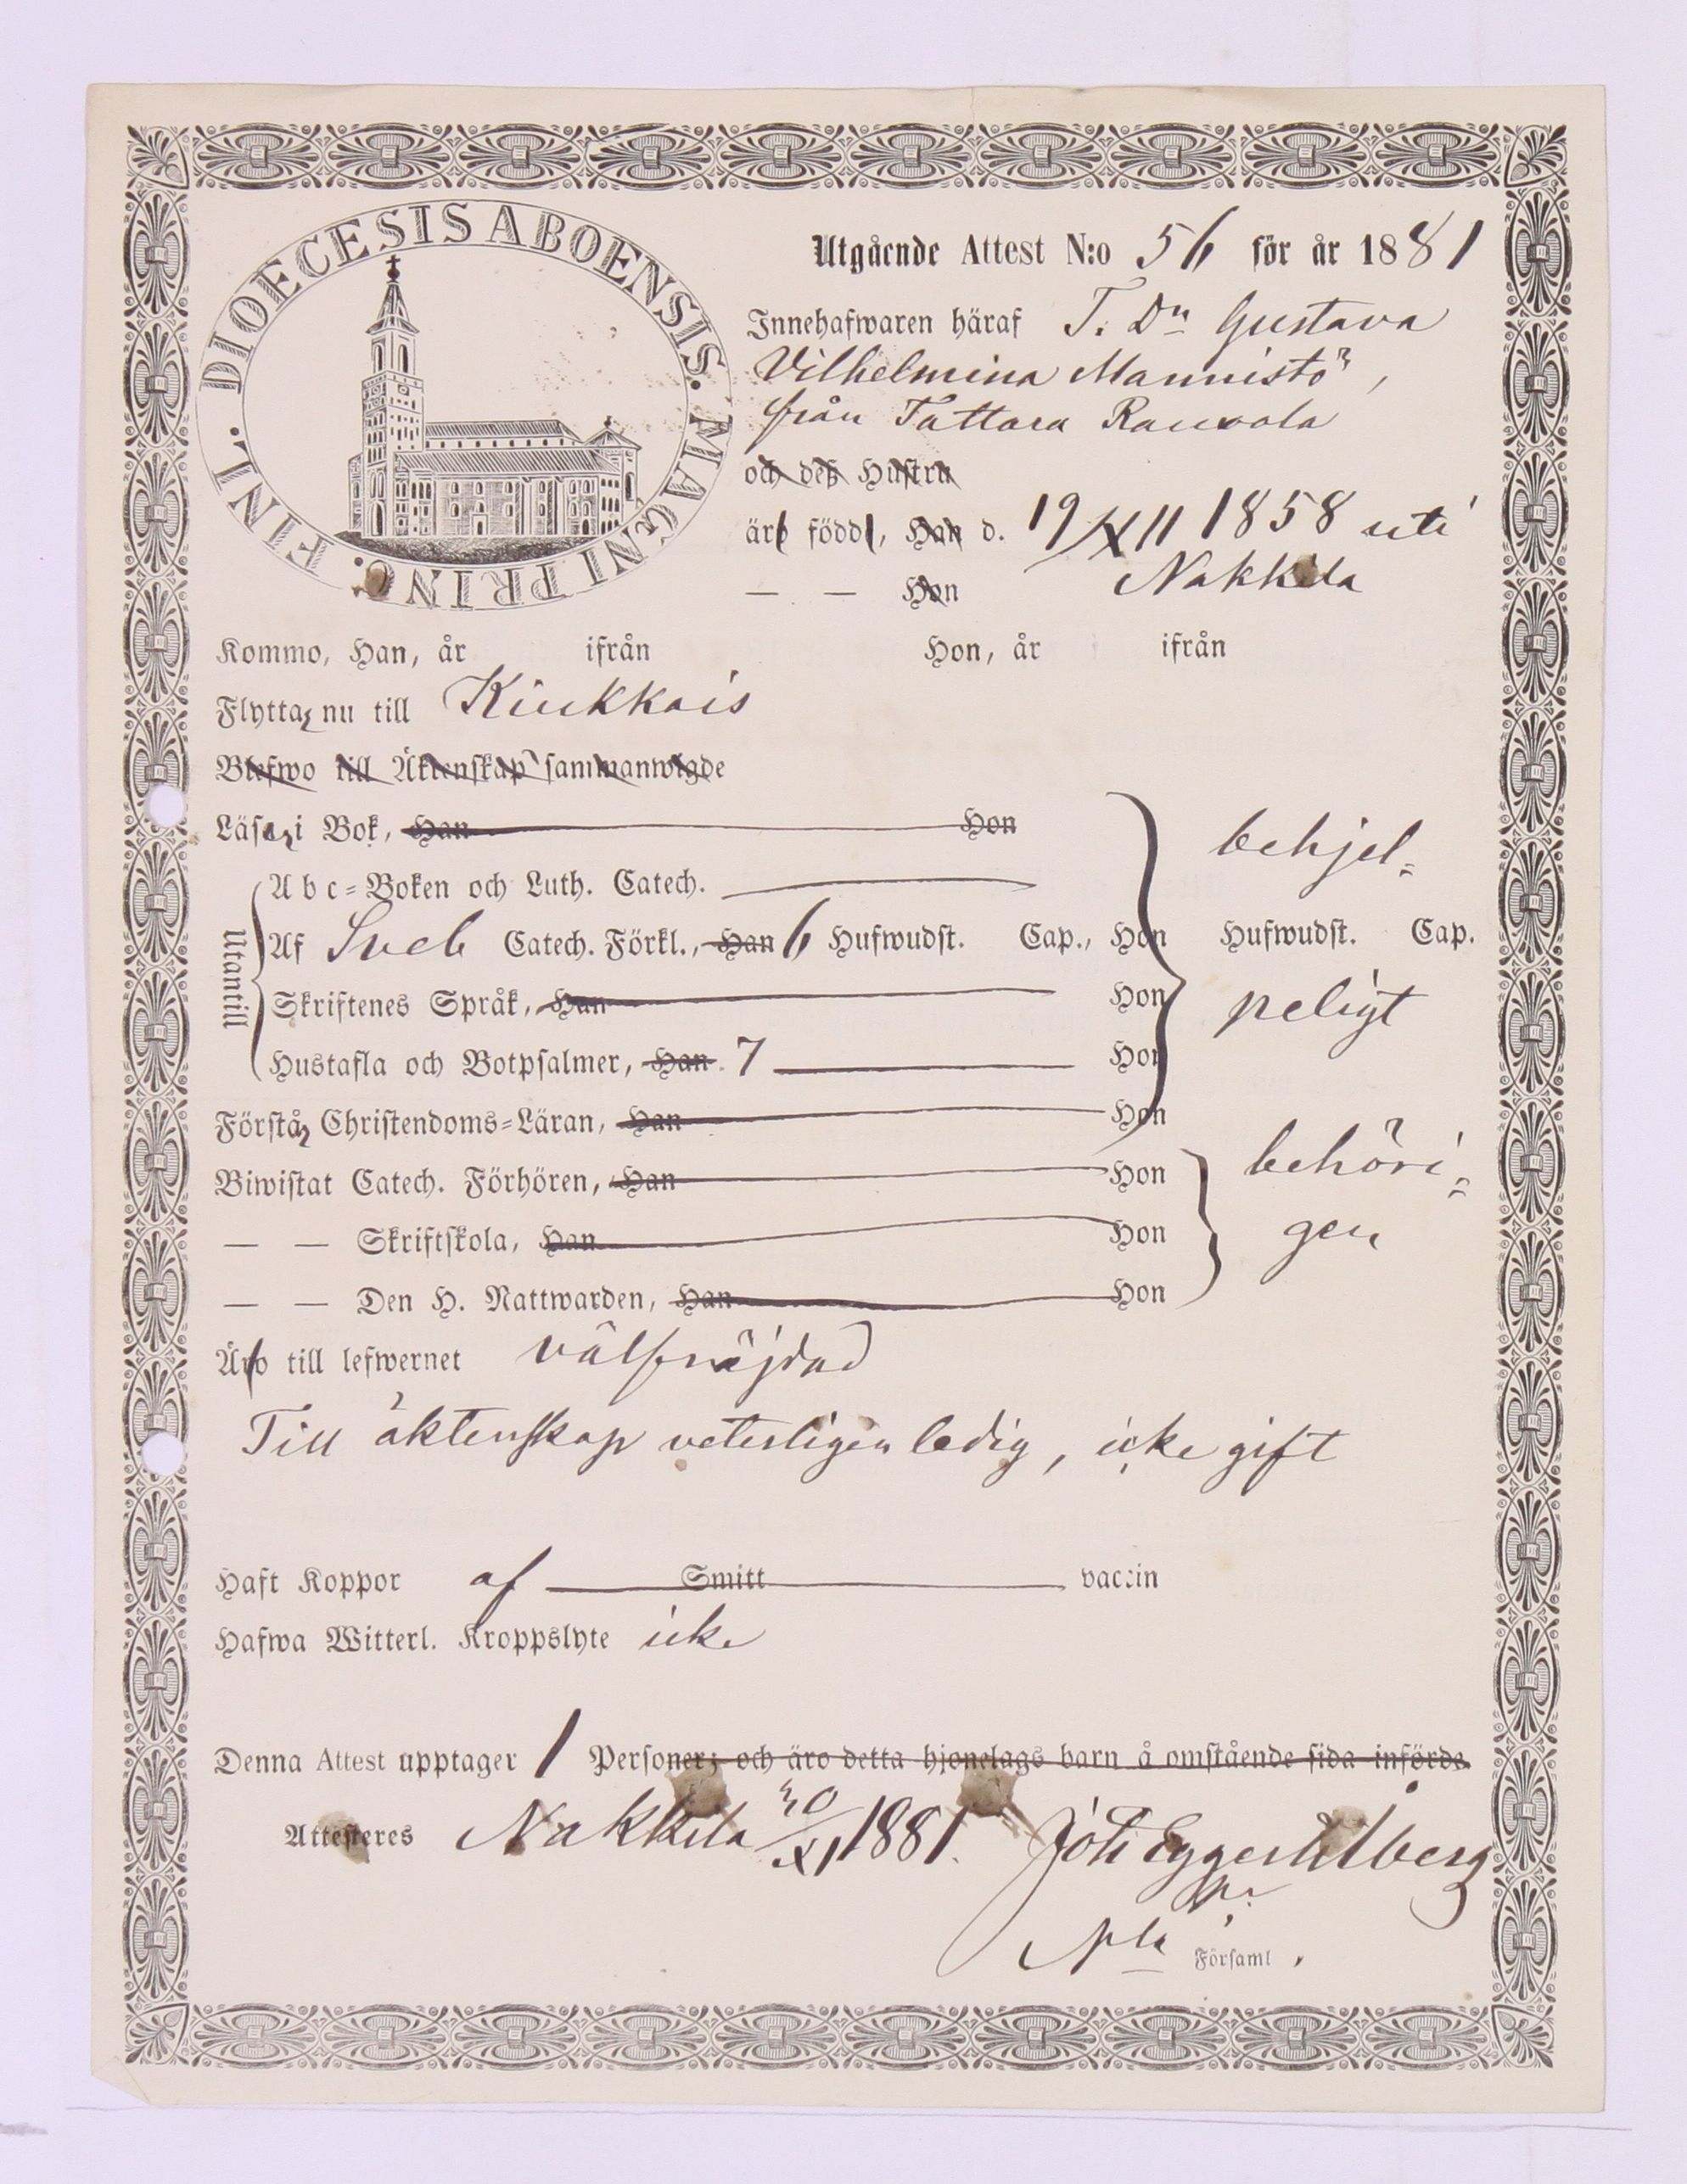 DIOECESIS ABOENSIS. MAGNI PRINC. FINL.
Utgående Attest N:o 56 för år 1881
Innehafwaren häraf T. Dr Gustava
Vilhelmina Mannistö,
från Tattara Rauvola
och deß Hustru
äro födde, Han d. 19/XII 1858 uti
— — Hon Nakkila
Kommo, Han, år ifrån Hon, år ifrån
Flyttar nu till Kiukkais
Blefwo till Äktenskap sammanwigde
Läser i Bok, Han Hon behjel=
Abc=Boken och Luth. Catech.
Utantill
Af Sveb Catech. Förkl., Han 6 Hufwudst. Cap., Hon Hufwudst. Cap.
Skriftenes Språk, Han Hon peligt
Hustafla och Botpsalmer, Han 7 Hon
Förstår Christendoms=Läran, Han Hon
Biwistat Catech. Förhören, Han Hon behöri=
— — Skriftskola, Han Hon gen
— — Den H. Nattwarden, Han Hon
Äro till lefwernet välfräjdad
Till äktenskap veterligen ledig, icke gift
Haft Koppor af Smitt vaccin
Hafwa Witterl. Kroppslyte icke
Denna Attest upptager 1 Personer; och äro detta hjonelags barn å omstående sida införde.
Attesteres Nakkila 30/XI 1881. Joh Egger Ahlberg
Församl.